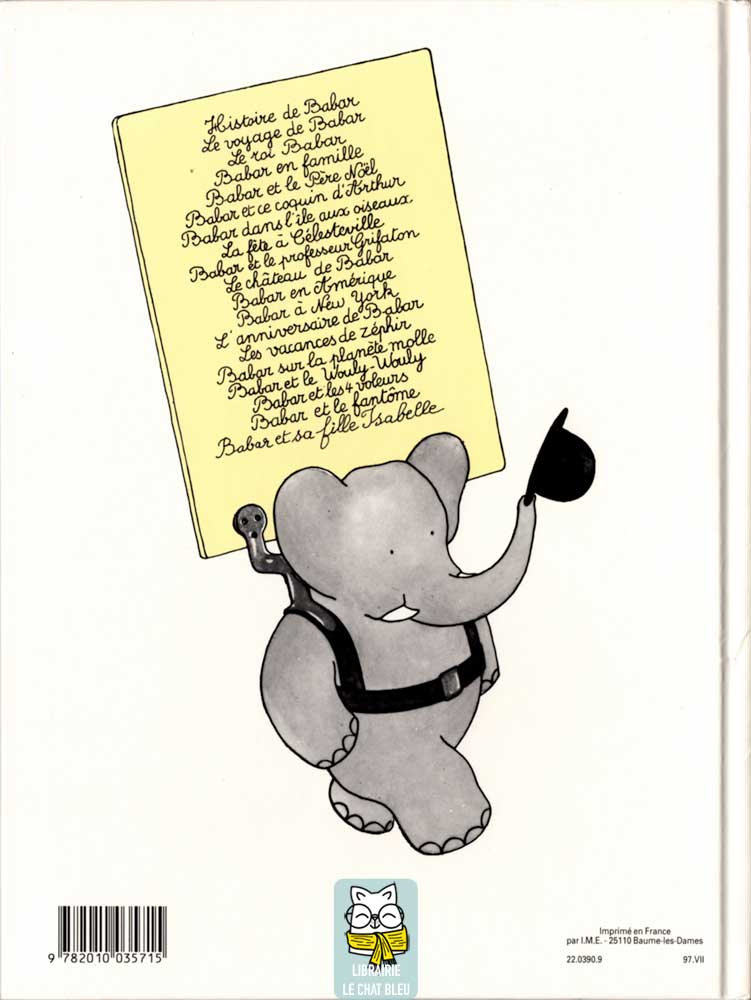 Histoire de Babar
Le voyage de Babar
Le roi Babar
Babar en famille
Babar et le Père Noël
Babar et ce coquin d'Arthur
Babar dans l'île aux oiseaux.
La fête à Célesteville
Babar et le professeur Grifaton
Le château de Babar
Babar en Amérique
Babar à New York
L'anniversaire de Babar
Les vacances de Zéphir
Babar sur la planète molle
Babar et le Wouly-Wouly
Babar et les 4 voleurs
Babar et le fantôme
Babar et sa fille Isabelle
9 782010 035715
LIBRAIRIE
LE CHAT BLEU
Imprimé en France
par I.M.E. - 25110 Baume-les-Dames
22.0390.9 97.VII